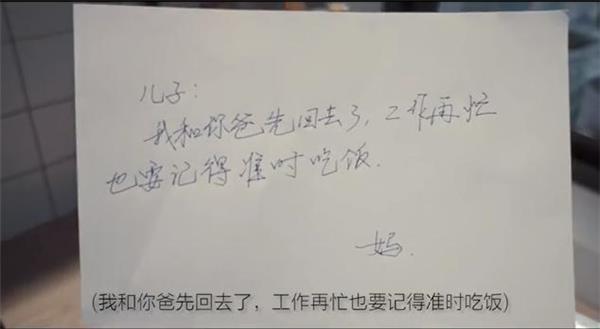 儿子：
我和你爸先回去了，工作再忙
也要记得准时吃饭.
妈.
(我和你爸先回去了，工作再忙也要记得准时吃饭)